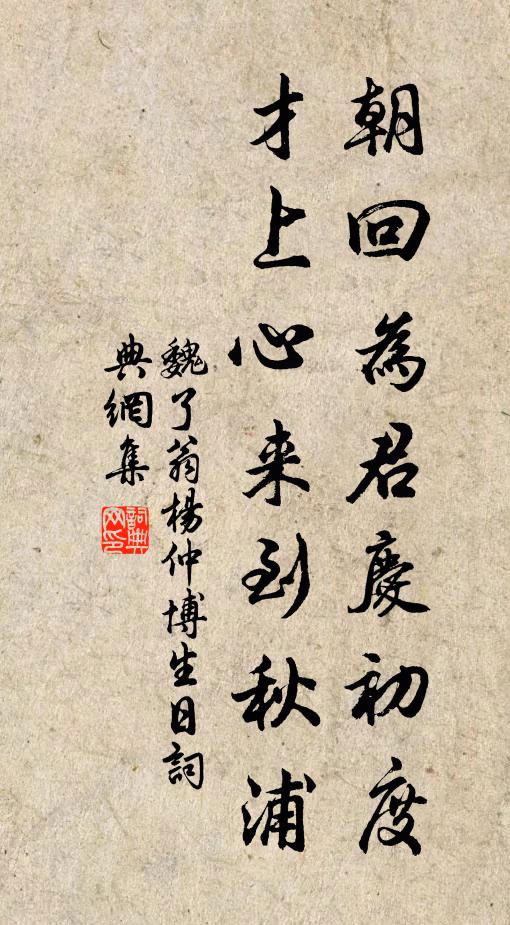 朝回為君慶初度
才上心来到秋浦
魏了翁楊仲博生日詞
典網集
詞典網印